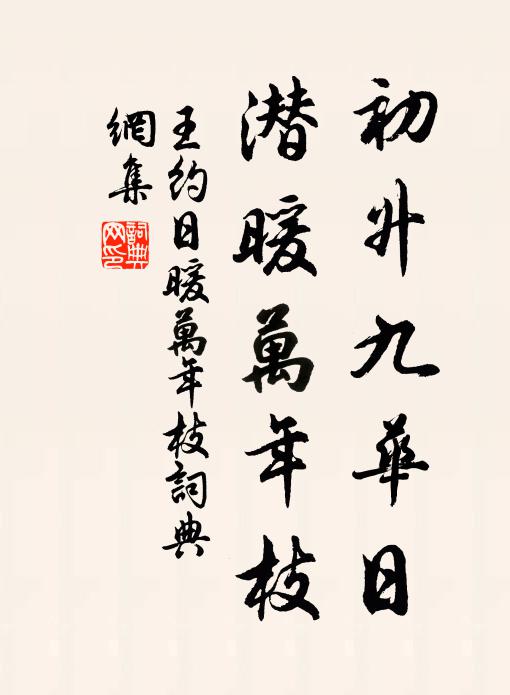 初升九華日
潜暖萬年枝
王約日暖萬年枝詞典
網集
詞典
网印